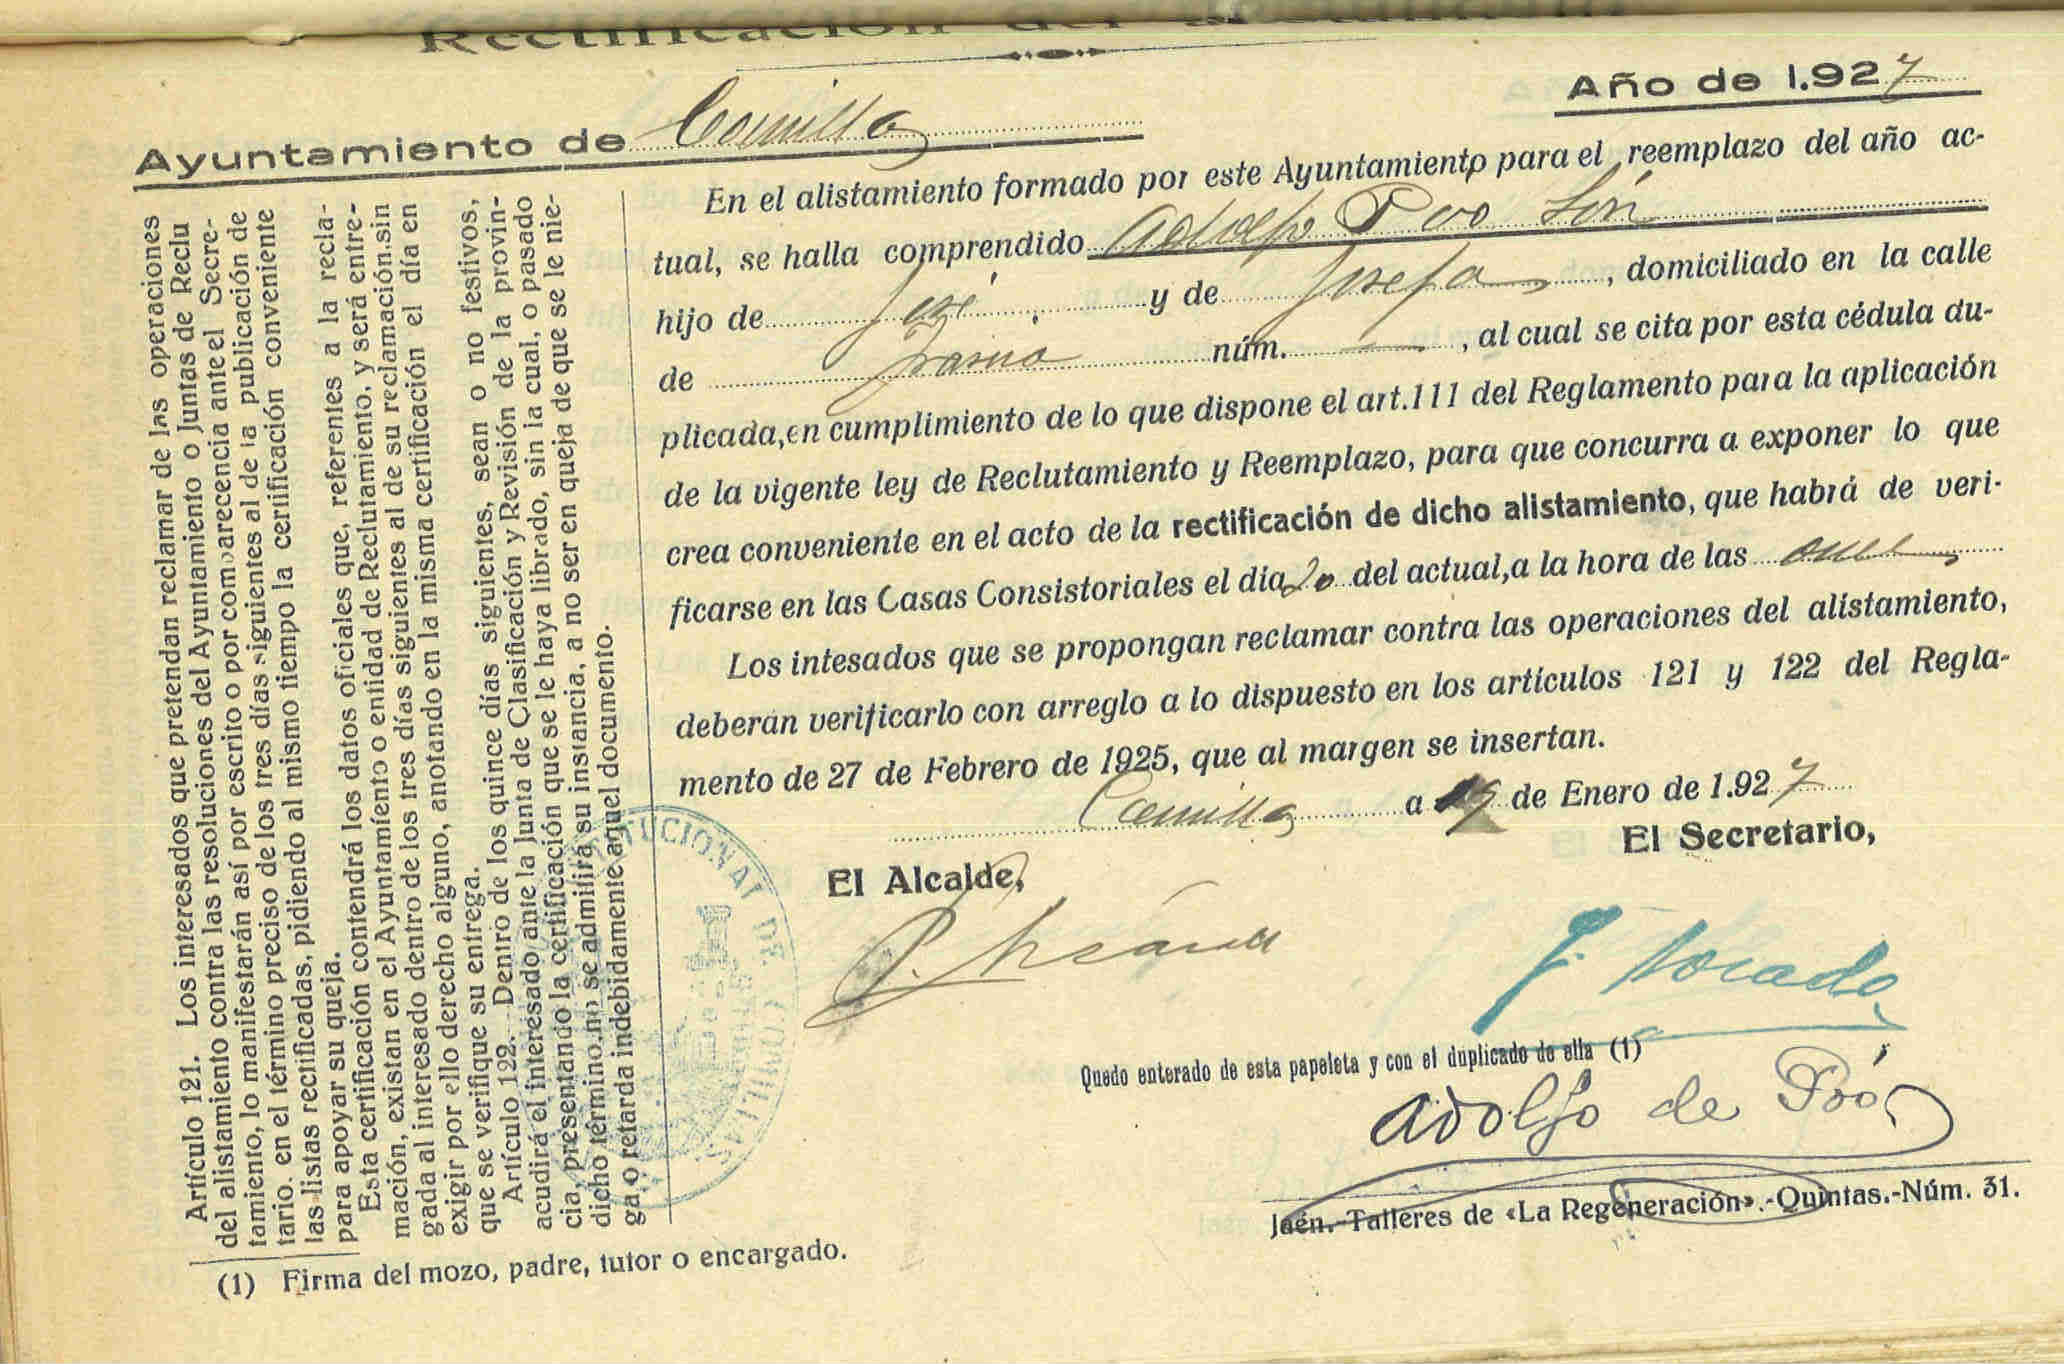 Rectificación del Alistamiento
Año de 1.927
Ayuntamiento de Comillas
En el alistamiento formado por este Ayuntamiento para el reemplazo del año ac-
tual, se halla comprendido Adolfo Poo
hijo de José y de Josefa, domiciliado en la calle
de núm. —, al cual se cita por esta cédula du-
plicada, en cumplimiento de lo que dispone el art. 111 del Reglamento para la aplicación
de la vigente ley de Reclutamiento y Reemplazo, para que concurra a exponer lo que
crea conveniente en el acto de la rectificación de dicho alistamiento, que habrá de veri-
ficarse en las Casas Consistoriales el día 20 del actual, a la hora de las once
Los intesados que se propongan reclamar contra las operaciones del alistamiento,
deberán verificarlo con arreglo a lo dispuesto en los artículos 121 y 122 del Regla-
mento de 27 de Febrero de 1925, que al margen se insertan.
Comillas a 19 de Enero de 1.927
El Alcalde,
El Secretario,
Quedo enterado de esta papeleta y con el duplicado de ella (1)
Adolfo de Póo
Jaén.-Talleres de «La Regeneración».-Quintas.-Núm. 31.
Artículo 121. Los interesados que pretendan reclamar de las operaciones
del alistamiento contra las resoluciones del Ayuntamiento o Juntas de Reclu
tamiento, lo manifestarán así por escrito o por comparecencia ante el Secre-
tario. en el término preciso de los tres días siguientes al de la publicación de
las listas rectificadas, pidiendo al mismo tiempo la certificación conveniente
para apoyar su queja.
Esta certificación contendrá los datos oficiales que, referentes a la recla-
mación, existan en el Ayuntamiento o entidad de Reclutamiento, y será entre-
gada al interesado dentro de los tres días siguientes al de su reclamación.sin
exigir por ello derecho alguno, anotando en la misma certificación el día en
que se verifique su entrega.
Artículo 122. Dentro de los quince días siguientes, sean o no festivos,
acudirá el interesado ante la Junta de Clasificación y Revisión de la provin-
cia, presentando la certificación que se le haya librado, sin la cual, o pasado
dicho término, no se admitirá su instancia, a no ser en queja de que se le nie-
ga o retarda indebidamente aquel documento.
(1) Firma del mozo, padre, tutor o encargado.